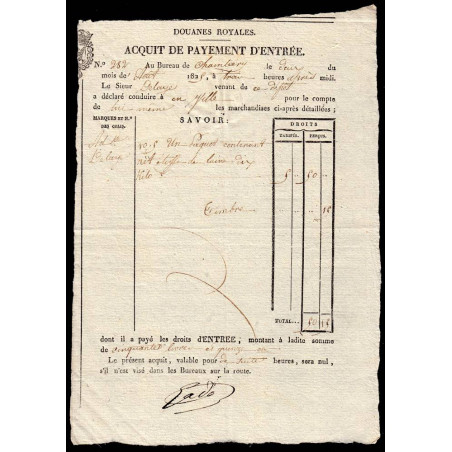 DOUANES ROYALES.
ACQUIT DE PAYEMENT D'ENTRÉE.
N.° 282 Au Bureau de Chambéry le deux du
mois de Août 182 , à trois heures après midi.
Le Sieur Delaye venant de ce dépôt
a déclaré conduire à en ville pour le compte
de lui-même les marchandises ci-après détaillées ;
SAVOIR:
MARQUES ET N.os DES COLIS.
DROITS
Un Paquet contenant
étoffe de laine dix
kilo
5 50
Timbre 15
TOTAL
dont il a payé les droits d'ENTRÉE, montant à ladite somme
de cinquante livres et quinze
Le présent acquit, valable pour heures, sera nul,
s'il n'est visé dans les Bureaux sur la route.